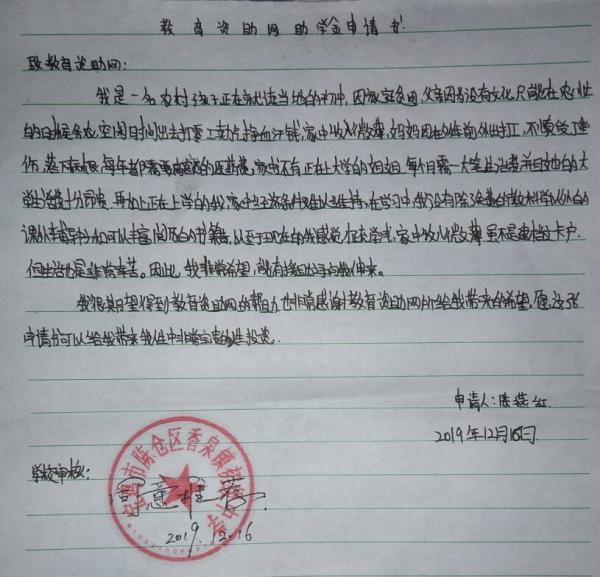 教育资助网助学金申请书
致教育资助网:
我是一名农村孩子正在就读当地的初中,因为家庭贫困,父亲因为没有文化只能在农忙
的时候务农,空闲时间出去打零工卖点挣血汗钱,家中收入微薄,妈妈因在几年前外出打工,不慎受了重
伤,落下病根,每年都需要高额的医药费,家中还有正在上大学的姐姐,每个月需一大笔生活费并且她的大
学生活费十分昂贵,再加上正在上学的我,家中经济条件难以维持,在学习中,我没有除了免费的教科书以外的
课外辅导书和可以丰富阅历的书籍,以至于现在的我感觉很吃力,家中收入微薄,虽不是建档立卡户,
但生活也是非常辛苦。因此,我非常希望,能有援助之手向我伸来。
我很期望得到教育资助网的帮助,也非常感谢教育资助网所给我带来的希望,愿这张
申请书可以给我带来我人生中非常宝贵的投资.
申请人:陈燕红
2019年12月16日
学校审核:
同意推荐
2019.12.16
宝鸡市陈仓区香泉镇初级中学